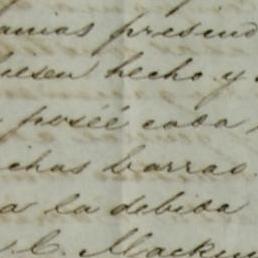 presen
hiesen hecho y
poséé cada
ichas barras
a la debida
C. Macken